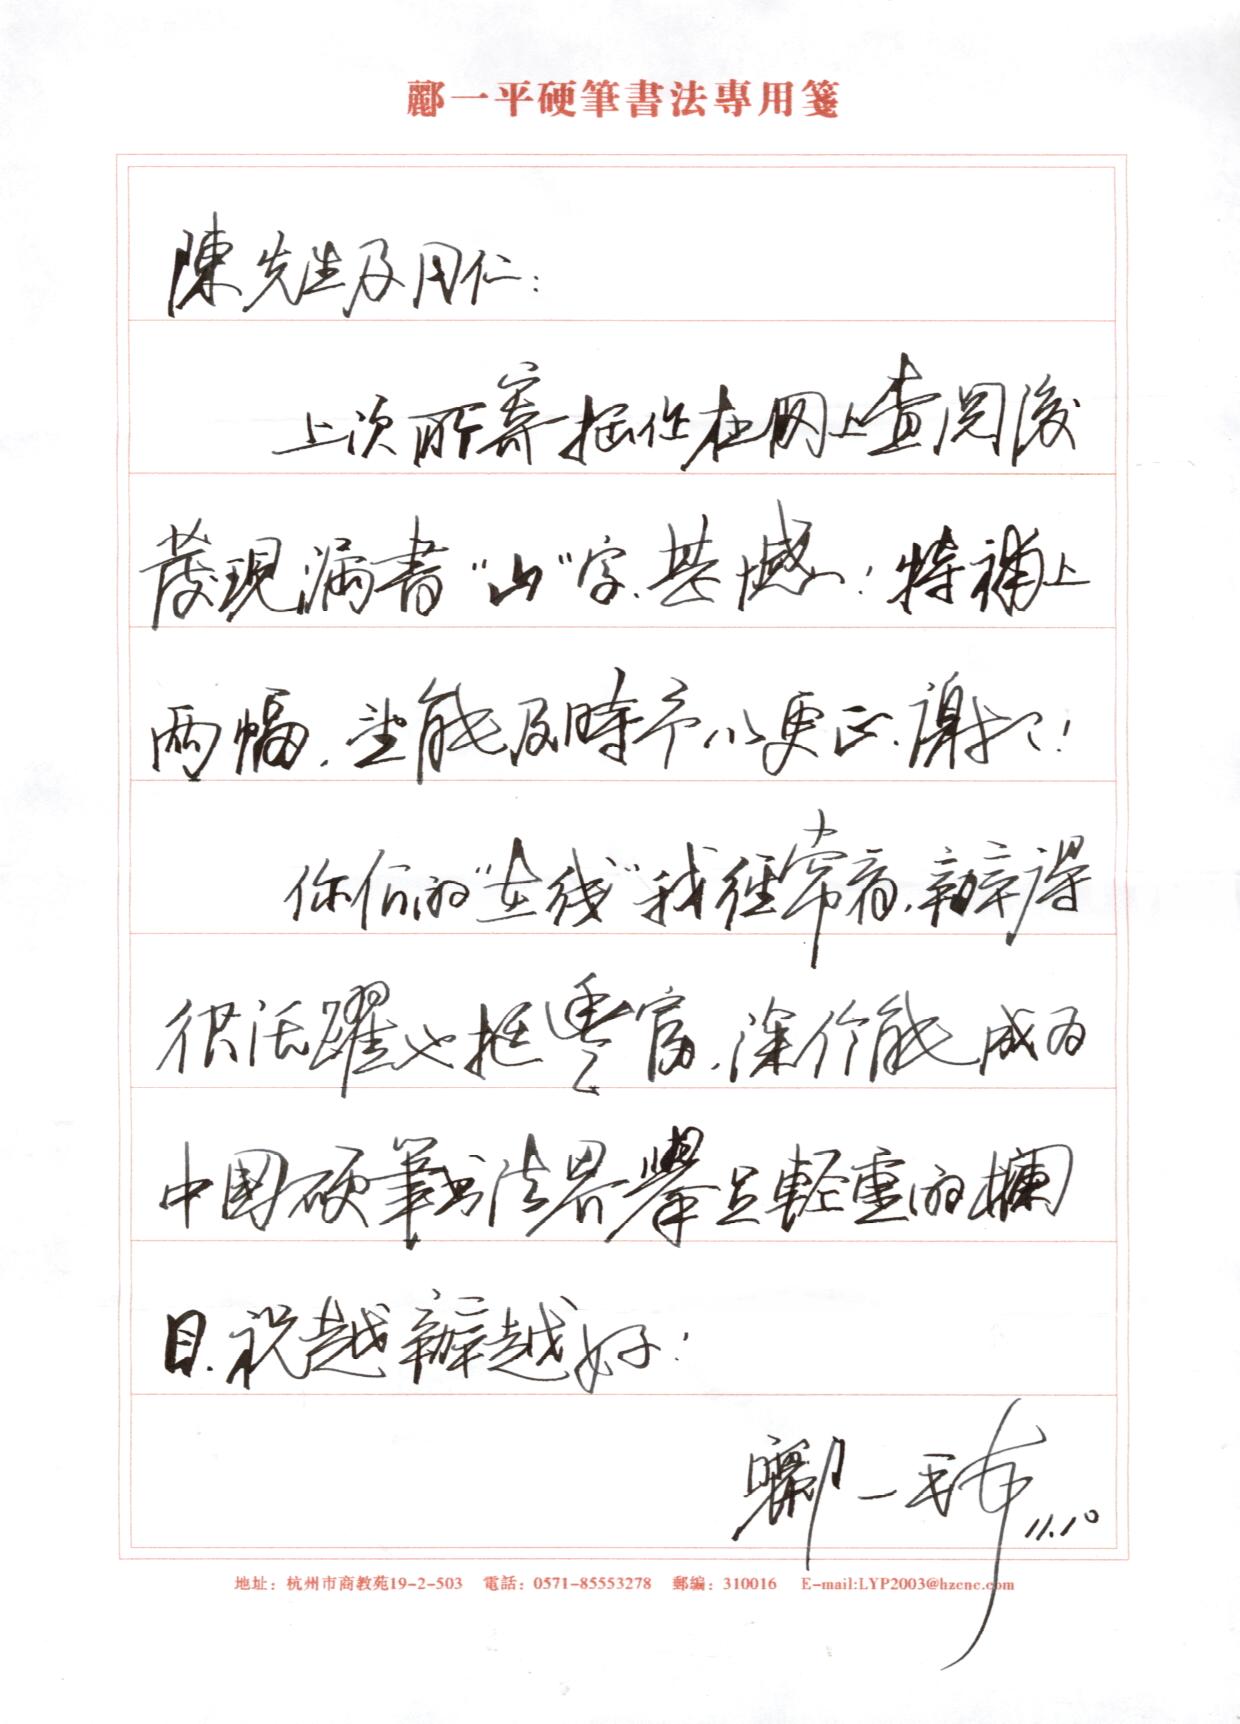 酈一平硬筆書法專用箋
陳先生及同仁：
上次所寄拙作在网上查閱後
發現漏書“山”字、甚憾！特補上
两幅，望能及時予以更正、謝謝！
你们的“在线”我經常看，辦得
很活躍也挺豐富，深信能成为
中國硬筆书法界舉足輕重的欄
目，祝越辦越好！
酈一平
11.10
地址：杭州市商教苑19-2-503 電話：0571-85553278 郵編：310016 E-mail:LYP2003@hzcnc.com